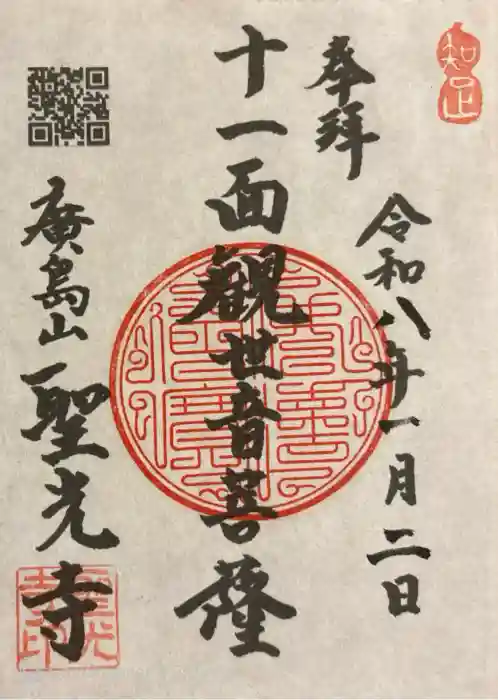 知足
奉拝
令和八年一月二日
十一面觀世音菩薩
廣島山
聖光寺
聖光寺印